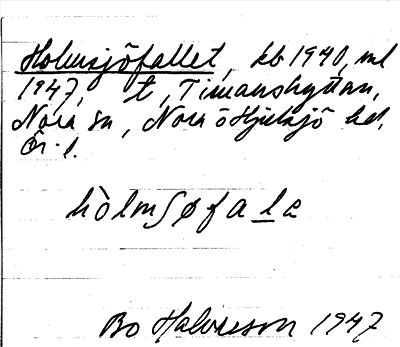 Holmsjöfallet, kb 1940, ml
1947, t, Timanshyttan,
Nora sn, Nora o Hjulsjö hd,
Ör. l.
hòlmʃøfalɛ
Bo Halvreson 1947